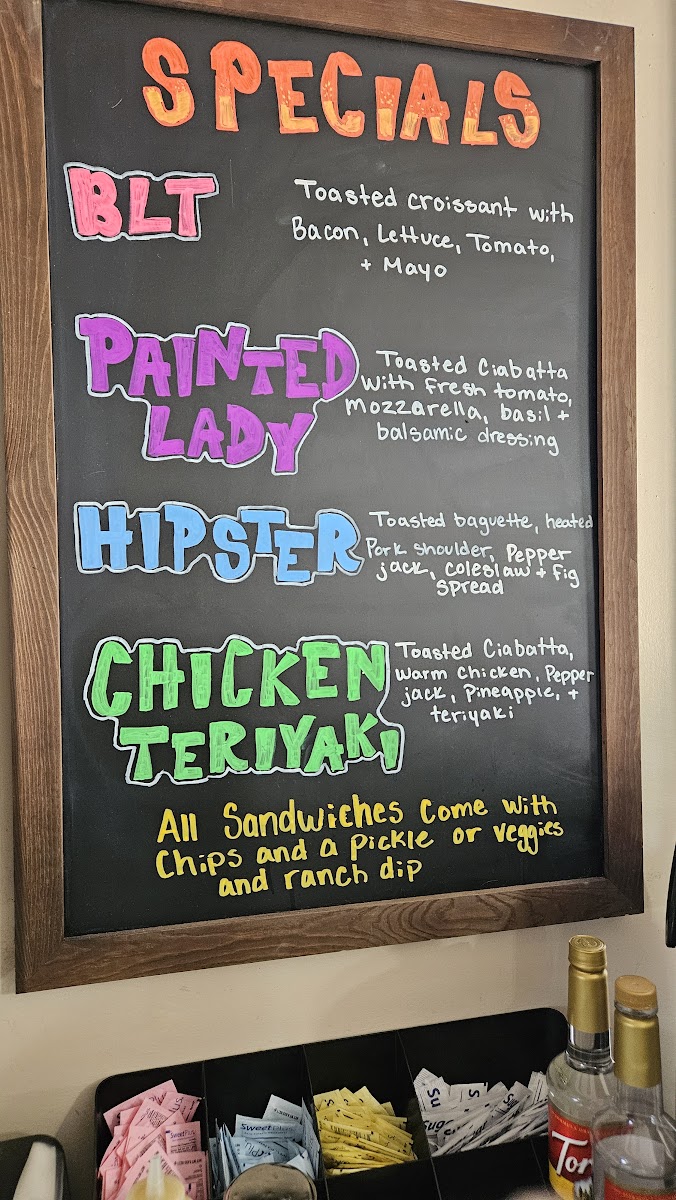 SPECIALS
BLT
Toasted croissant with
Bacon, Lettuce, Tomato,
+ Mayo
PAINTED
LADY
Toasted Ciabatta
with fresh tomato,
mozzarella, basil +
balsamic dressing
HIPSTER
Toasted baguette, heated
Pork shoulder, Pepper
jack, coleslaw + fig
spread
CHICKEN
TERIYAKI
Toasted Ciabatta,
warm chicken, Pepper
jack, Pineapple, +
teriyaki
All Sandwiches come with
Chips and a pickle or veggies
and ranch dip
Sweet
Tor